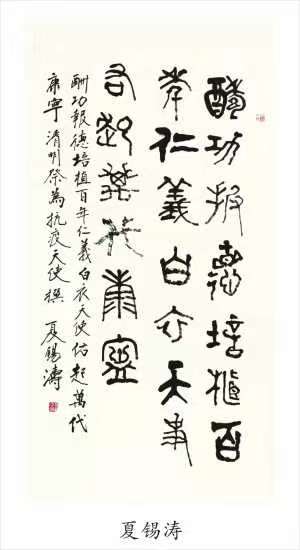 酬功報德培植百
年仁義白衣天使
佑起萬代康寧
酬功報德培植百年仁義白衣天使佑起萬代
康寧 清明祭為抗疫天使撰 夏錫濤
夏锡涛